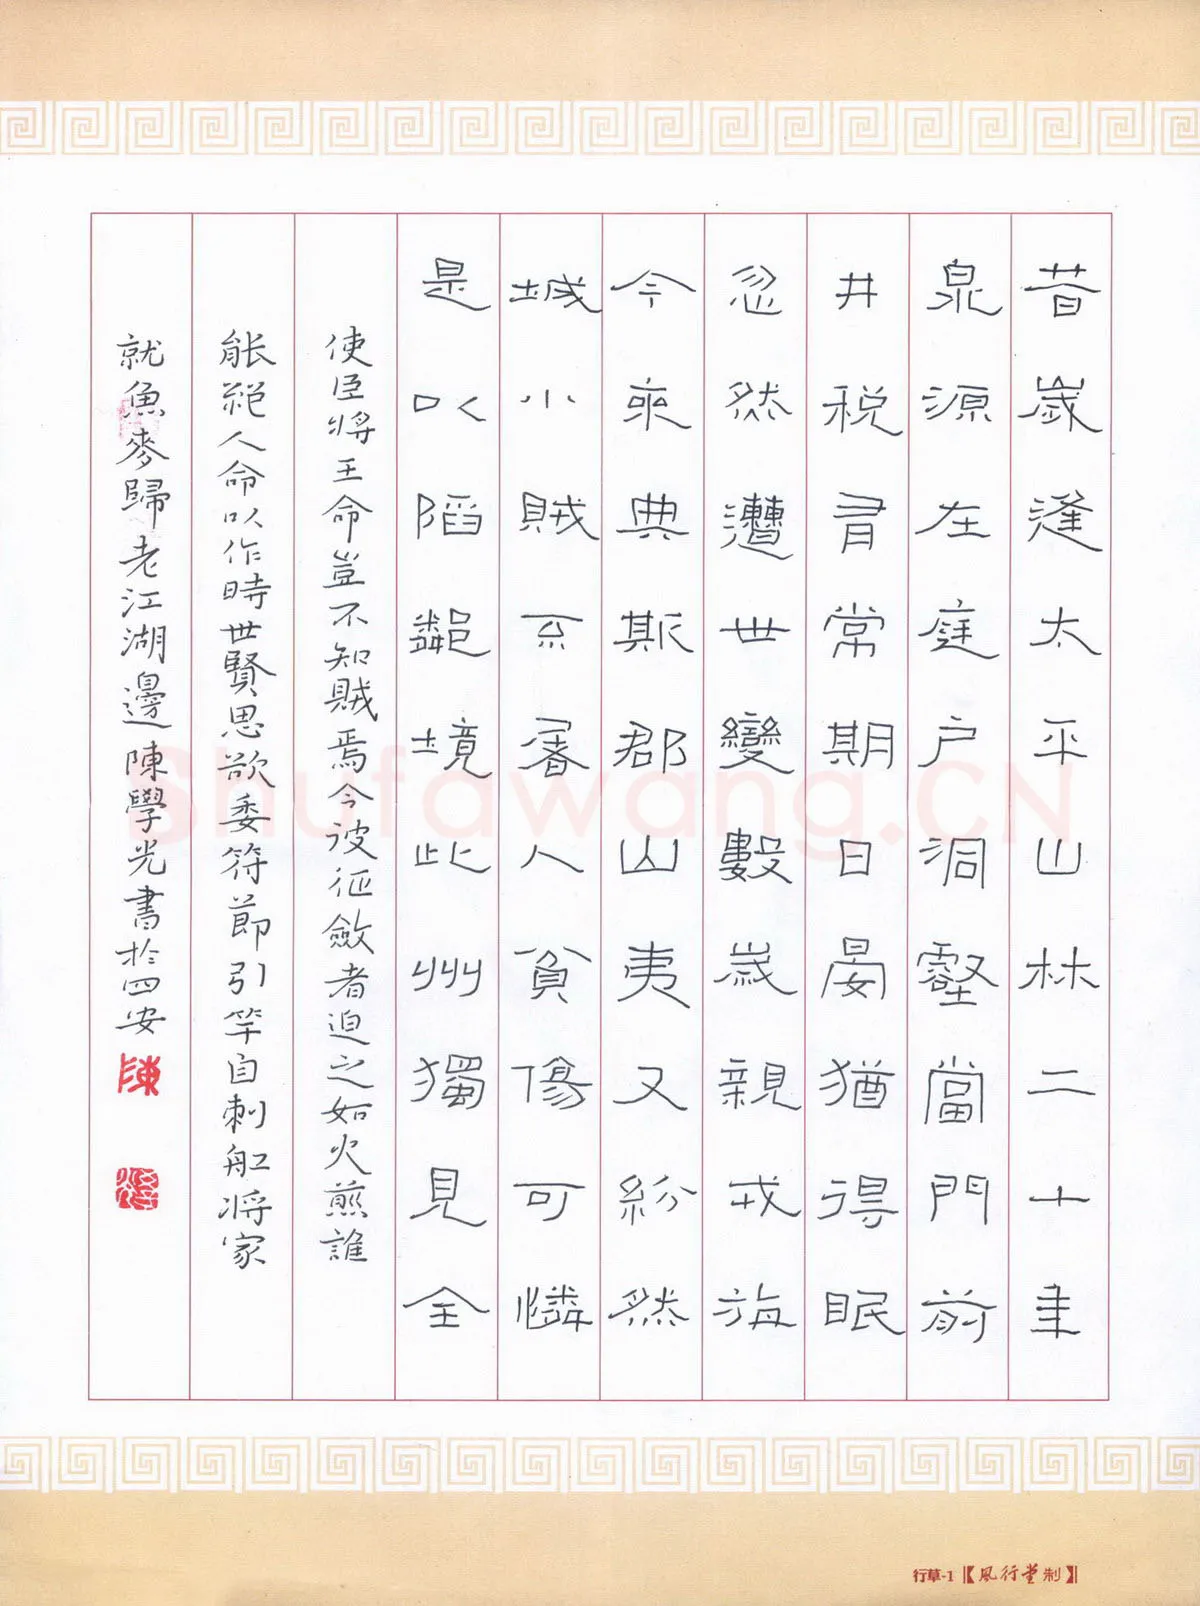 昔歲逢太平山林二十年
泉源在庭戶洞壑當門前
井稅有常期日晏猶得眠
忽然遭世變數歲親戎旃
今來典斯郡山夷又紛然
城小賊不屠人貧傷可憐
是以陷鄰境此州獨見全
使臣將王命豈不知賊焉今彼征斂者迫之如火煎誰
能絕人命以作時世賢思欲委符節引竿自刺船將家
就魚麥歸老江湖邊陳學光書於四安
陳
Shufawang.CN
行草-1【風行堂制】